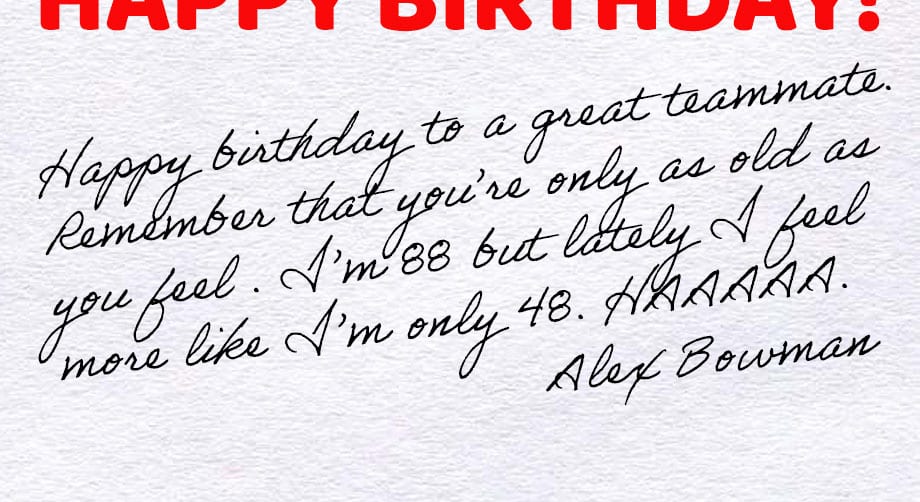 HAPPY BIRTHDAY!
Happy birthday to a great teammate.
Remember that you're only as old as
you feel. I'm 88 but lately I feel
more like I'm only 48. HAAAAAA.
Alex Bowman